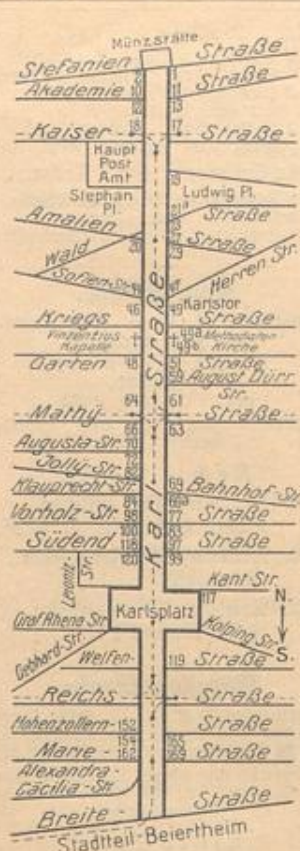 Münzstätte
Stefanien Straße
2 1
Akademie 10 11 Straße
12 13
Kaiser 18 17 Straße
Haupt
Post
Amt
Stephan
Pl.
Ludwig Pl.
Amalien Straße
Wald Straße
Sofien-Str.
Herren Str.
Karlstor
Kriegs 46 49 Straße
Vinzentius
Kapelle
49a Methodisten
49b Kirche
Garten 48 51 Straße
59 August Dürr
Str.
Karl-Straße
64 61
Mathy Straße
66 63
Augusta-Str.
Jolly-Str.
Klauprecht-Str. 69 Bahnhof-Str.
Vorholz-Str. 77 Straße
Südend Straße
120 99
Leibniz-
Str.
Kant-Str.
117
N.
S.
Karlsplatz
Graf Rhena Str.
Kolping Str.
Gebhard-Str.
Welfen- 119 Straße
Reichs Straße
Hohenzollern-152 Straße
154 155
Marie-162 169 Straße
Alexandra-
Cäcilia-Str.
Breite- Straße
Stadtteil-Beiertheim